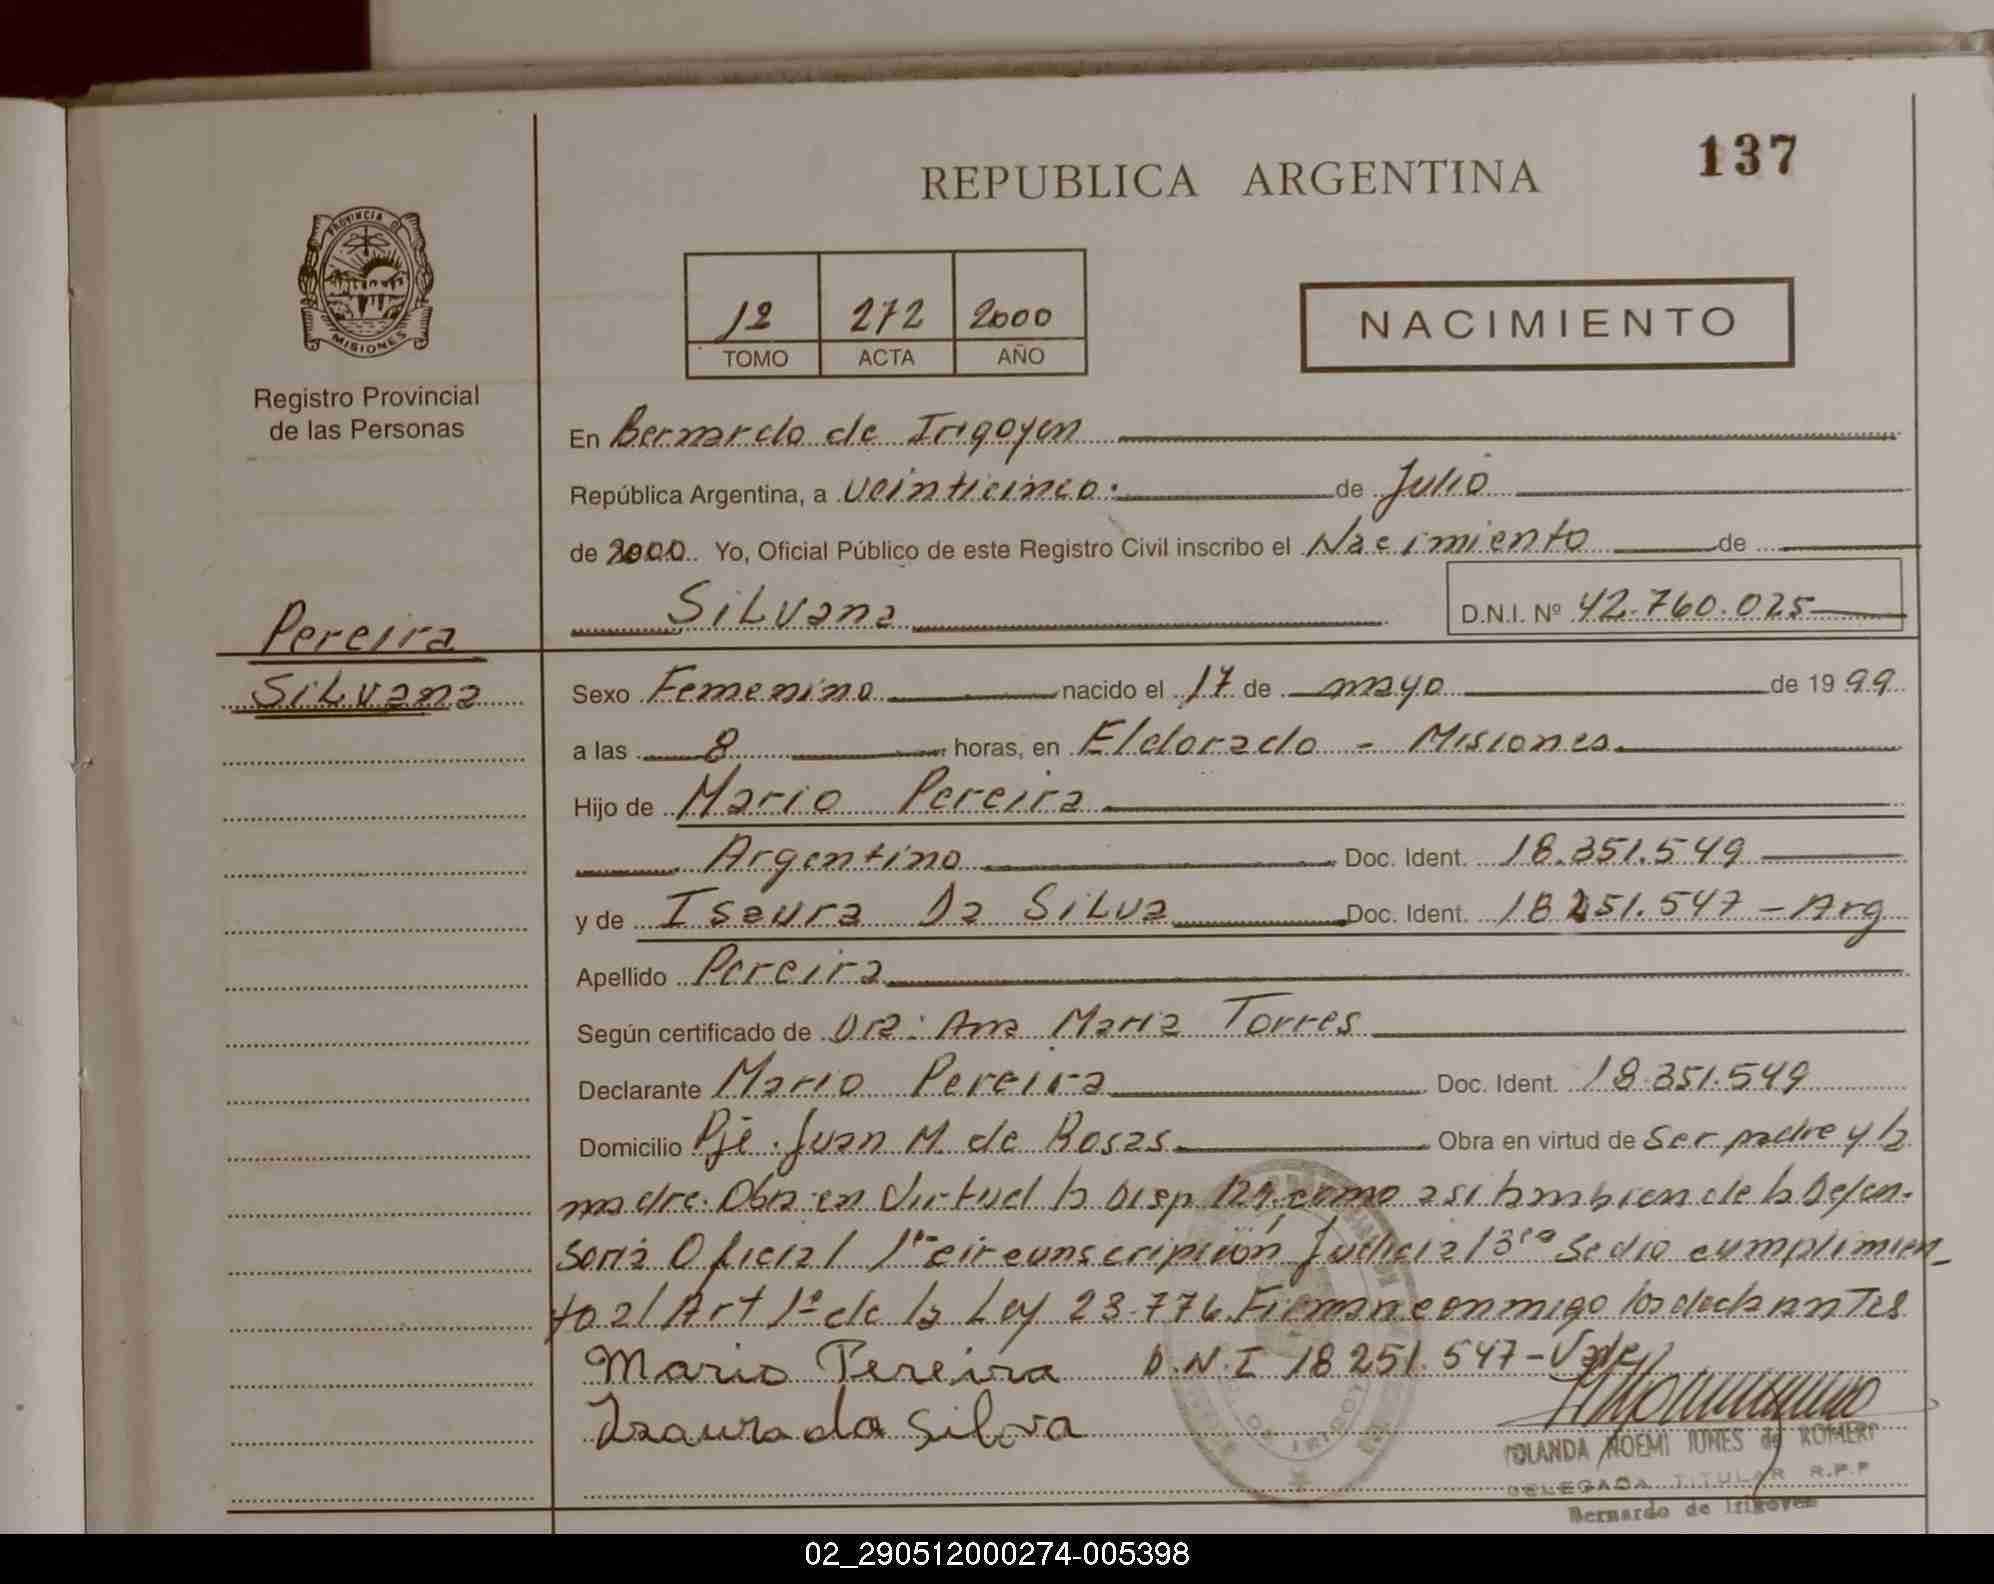 137
REPUBLICA ARGENTINA
PROVINCIA DE
MISIONES
Registro Provincial
de las Personas
12 272 2000
TOMO ACTA AÑO
NACIMIENTO
En Bernardo de Irigoyen
República Argentina, a veinticinco. de Julio
de 2000. Yo, Oficial Público de este Registro Civil inscribo el Nacimiento de
SiLvana D.N.I. Nº 42.760.025
Pereira
SiLvana
Sexo Femenino nacido el 17 de mayo de 1999
a las 8 horas, en Eldorado - Misiones.
Hijo de Mario Pereira
Argentino Doc. Ident. 18.351.549
y de Isaura Da SiLva Doc. Ident. 18 251.547 - Arg
Apellido Pereira
Según certificado de Dra: Ana Maria Torres
Declarante Mario Pereira Doc. Ident. 18.351.549
Domicilio Pje. Juan M. de Rosas Obra en virtud de Ser padre y la
madre. Obra en virtud la Disp como asi tambien de la Defen-
soria Oficial 1ra circunscripción Judicial 3ra Se dio cumplimien-
to al Art 1º de la Ley 23.776. Firman conmigo los declarantes
Mario Pereira D.N.I 18 251.547 - Vale
Izaura da Silva
YOLANDA NOEMI JUNES de ROMERO
DELEGADA TITULAR R.P.P
Bernardo de Irigoyen
02_290512000274-005398